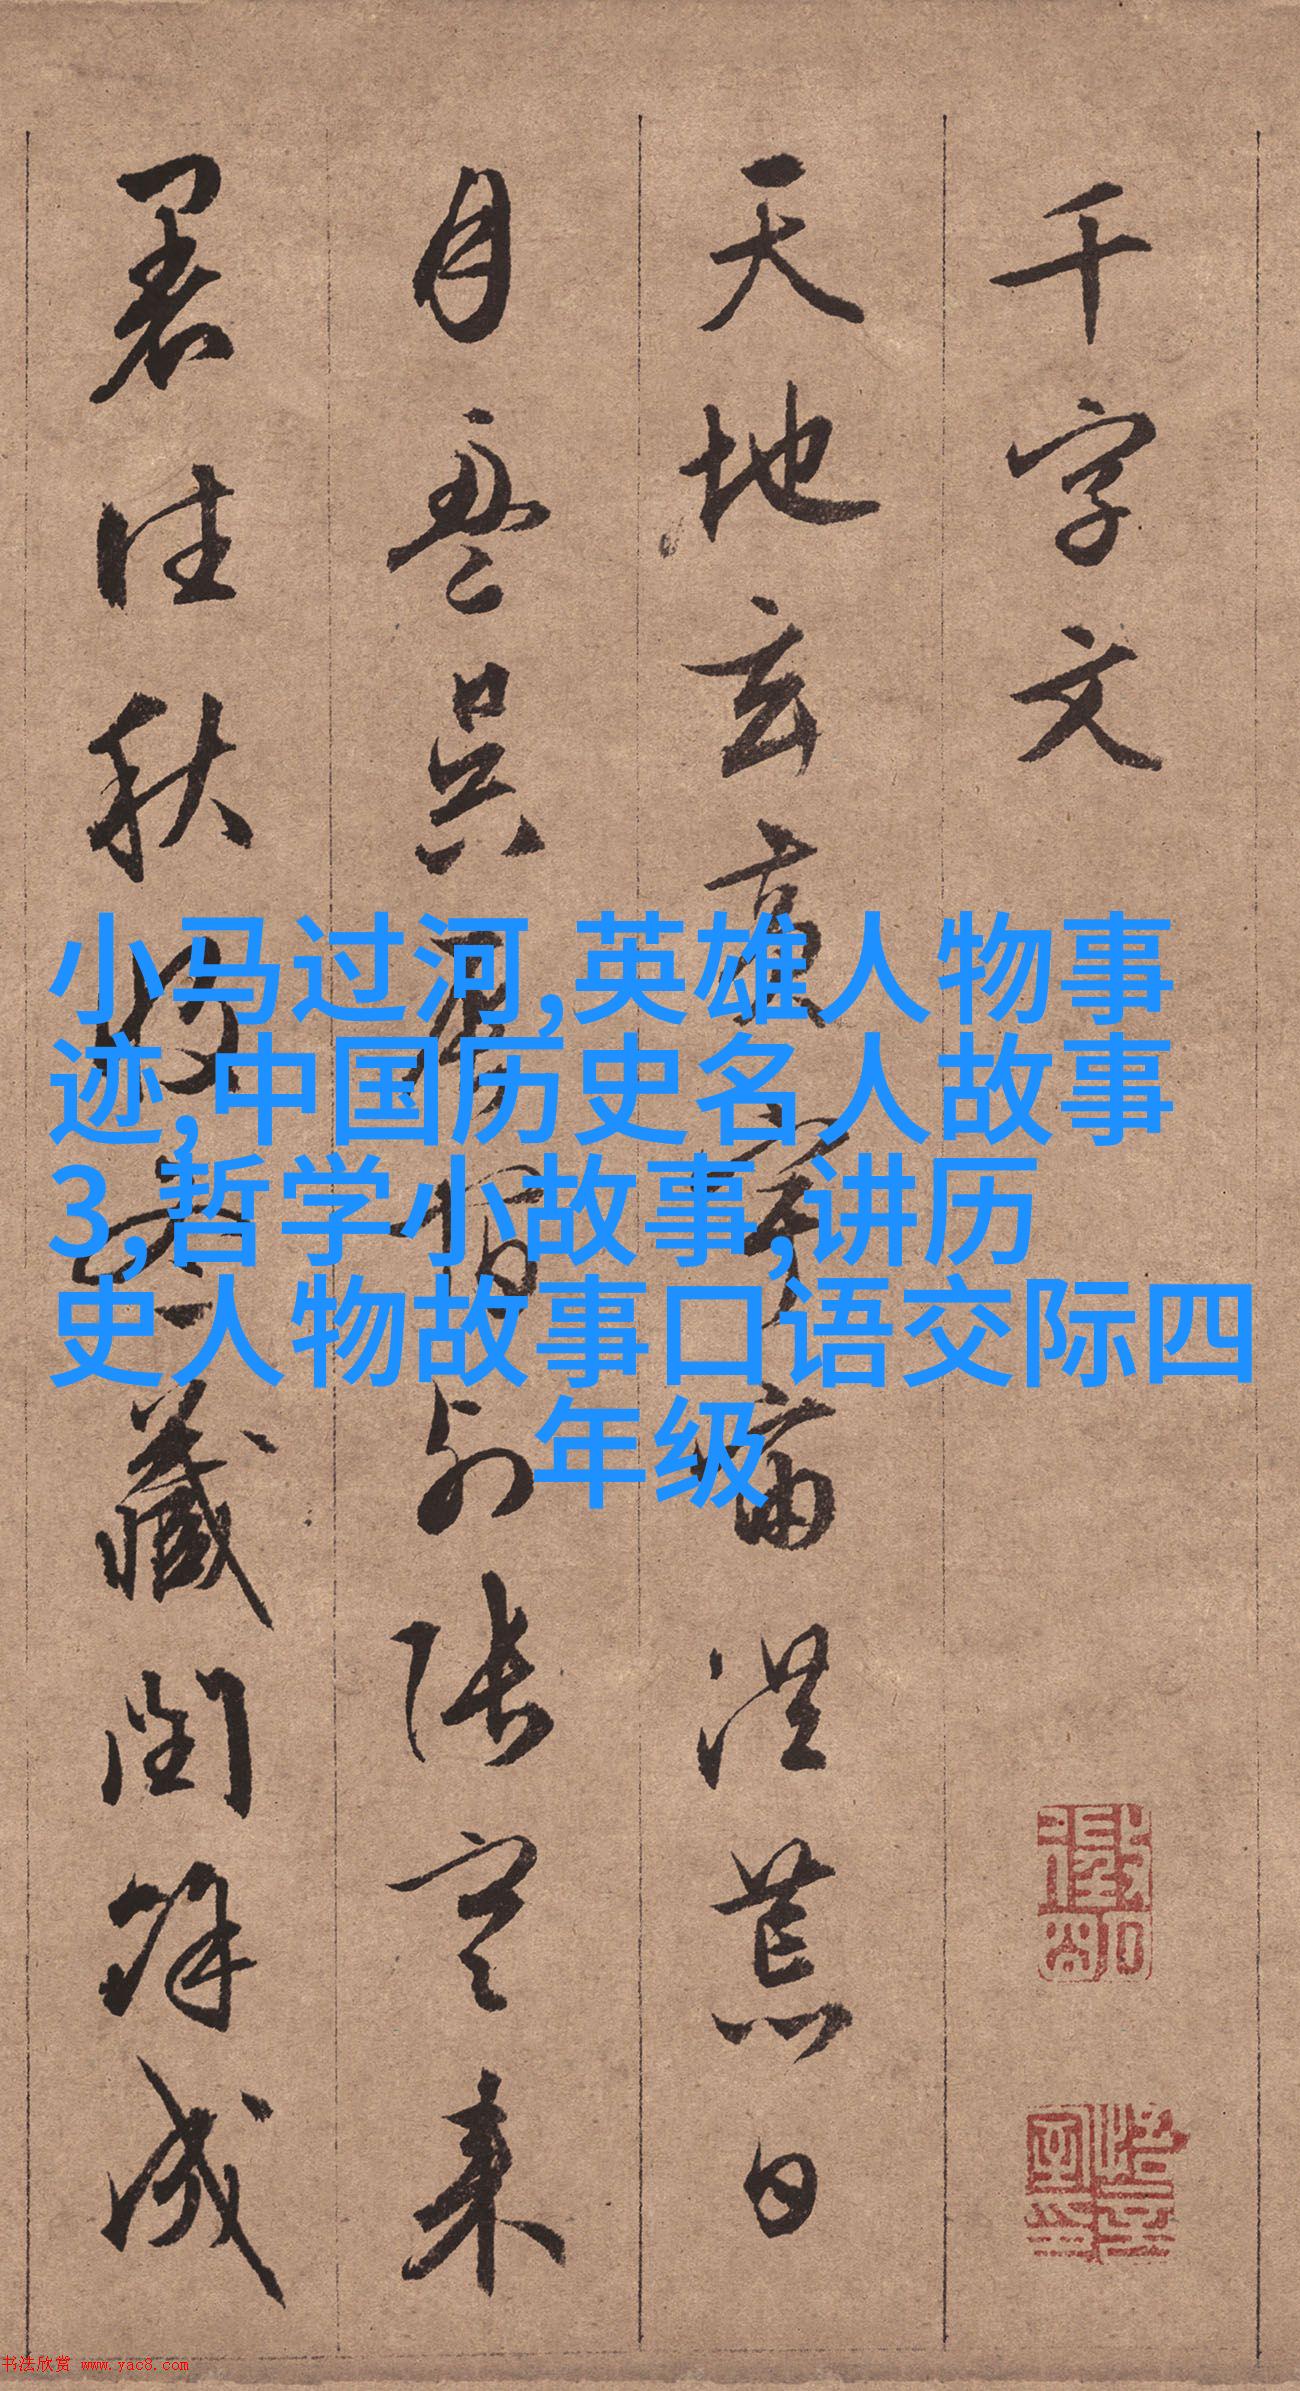 千字文
天地玄黄宇宙洪荒日
月盈昃辰宿列張寒来
暑往秋收冬藏閏餘成
小马过河,英雄人物事
迹,中国历史名人故事
3,哲学小故事,讲历
史人物故事口语交际四
年级
书法欣赏 www.yac8.com